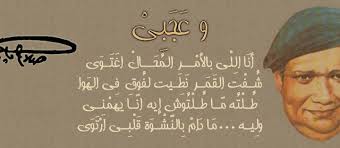 و عَجَبيْ
أنَا اللي بالأمْر المُحَال اغْتَوَى
شُفْت القَمَر نَطّيت لفُوق في الهَوا
طُلْته مَا طُلْتُوش إيه أنَا يهَمني
وليه ... مَا دَام بالنّشْوَة قَلْبي ارْتوَى
صلاح جاهين